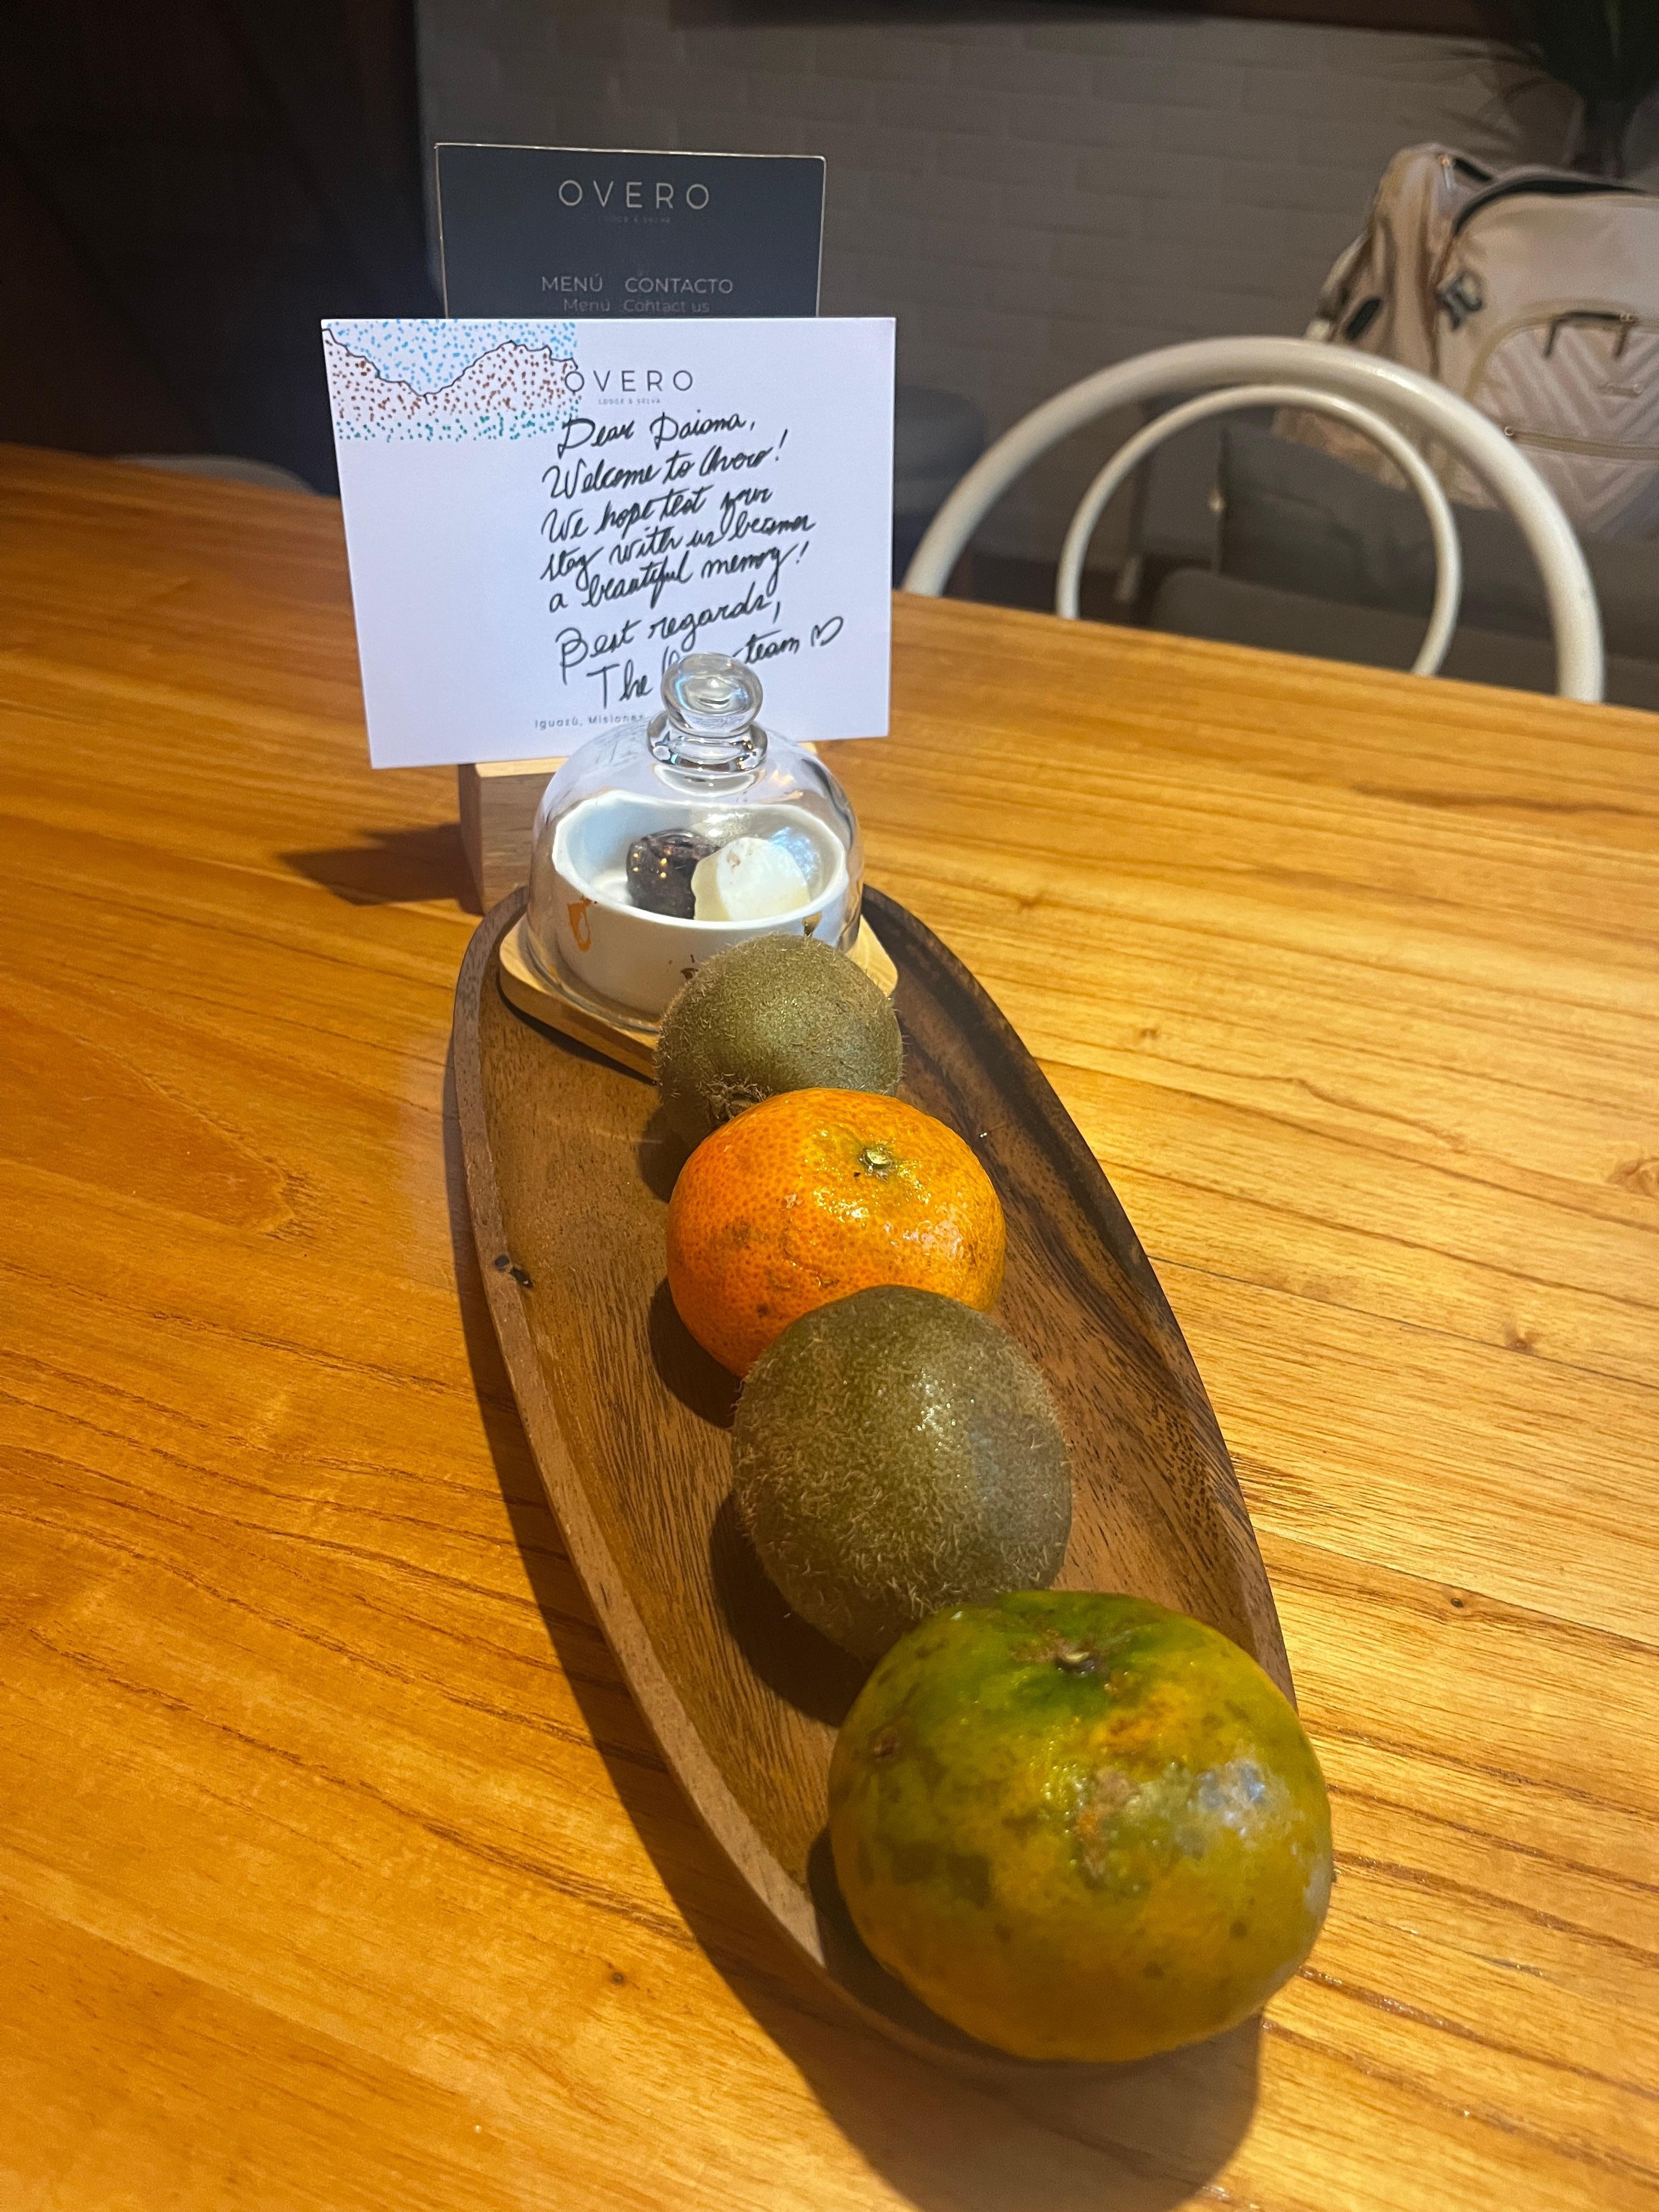 OVERO
LODGE & SELVA
MENÚ CONTACTO
Menú Contact us
OVERO
LODGE & SELVA
Dear Daiana,
Welcome to Overo!
We hope test your
stay with us becomes
a beautiful memory!
Best regards,
The team ♡
Iguazú, Misiones